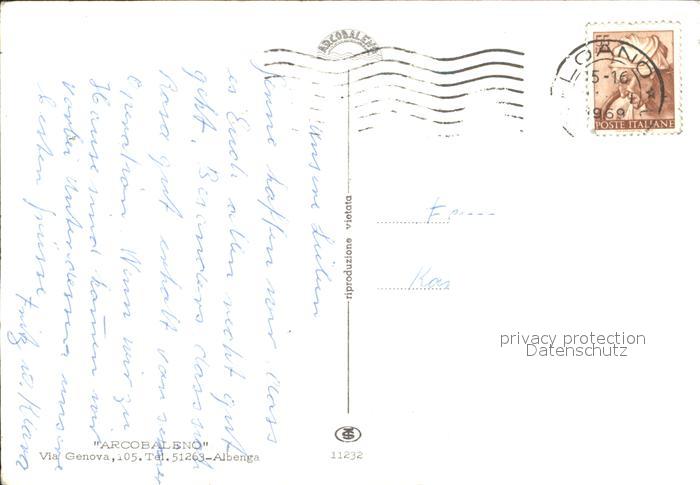 ARCOBALENO
LOANO
15-16
1969
POSTE ITALIANE
Unsere Lieben
Gerne hoffen wir, dass
es Euch allen recht gut
geht. Besonders dass sich
Rosa gut erholt von seiner
Operation. Wenn wir zu
Hause sind kommen wir
vorbei Unterdessen unsere
besten Grüsse
Fritz u. Klara
riproduzione vietata
F
Kas
privacy protection
Datenschutz
"ARCOBALENO"
Via Genova, 105. Tel. 51263-Albenga
11232